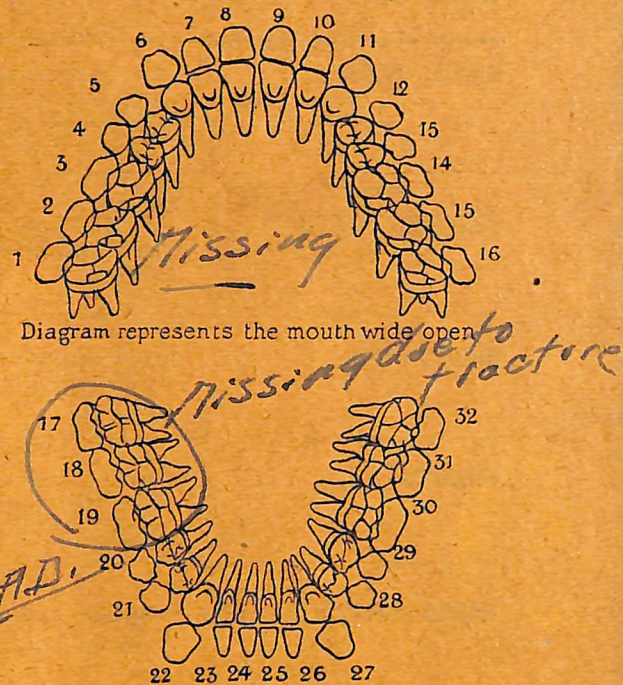 7 8 9 10
6 11
5 12
4 15
3 14
2 15
1 16
Missing
Diagram represents the mouth wide open
Missing due to
fracture
17 32
18 31
19 30
20 29
A.D.
21 28
22 23 24 25 26 27